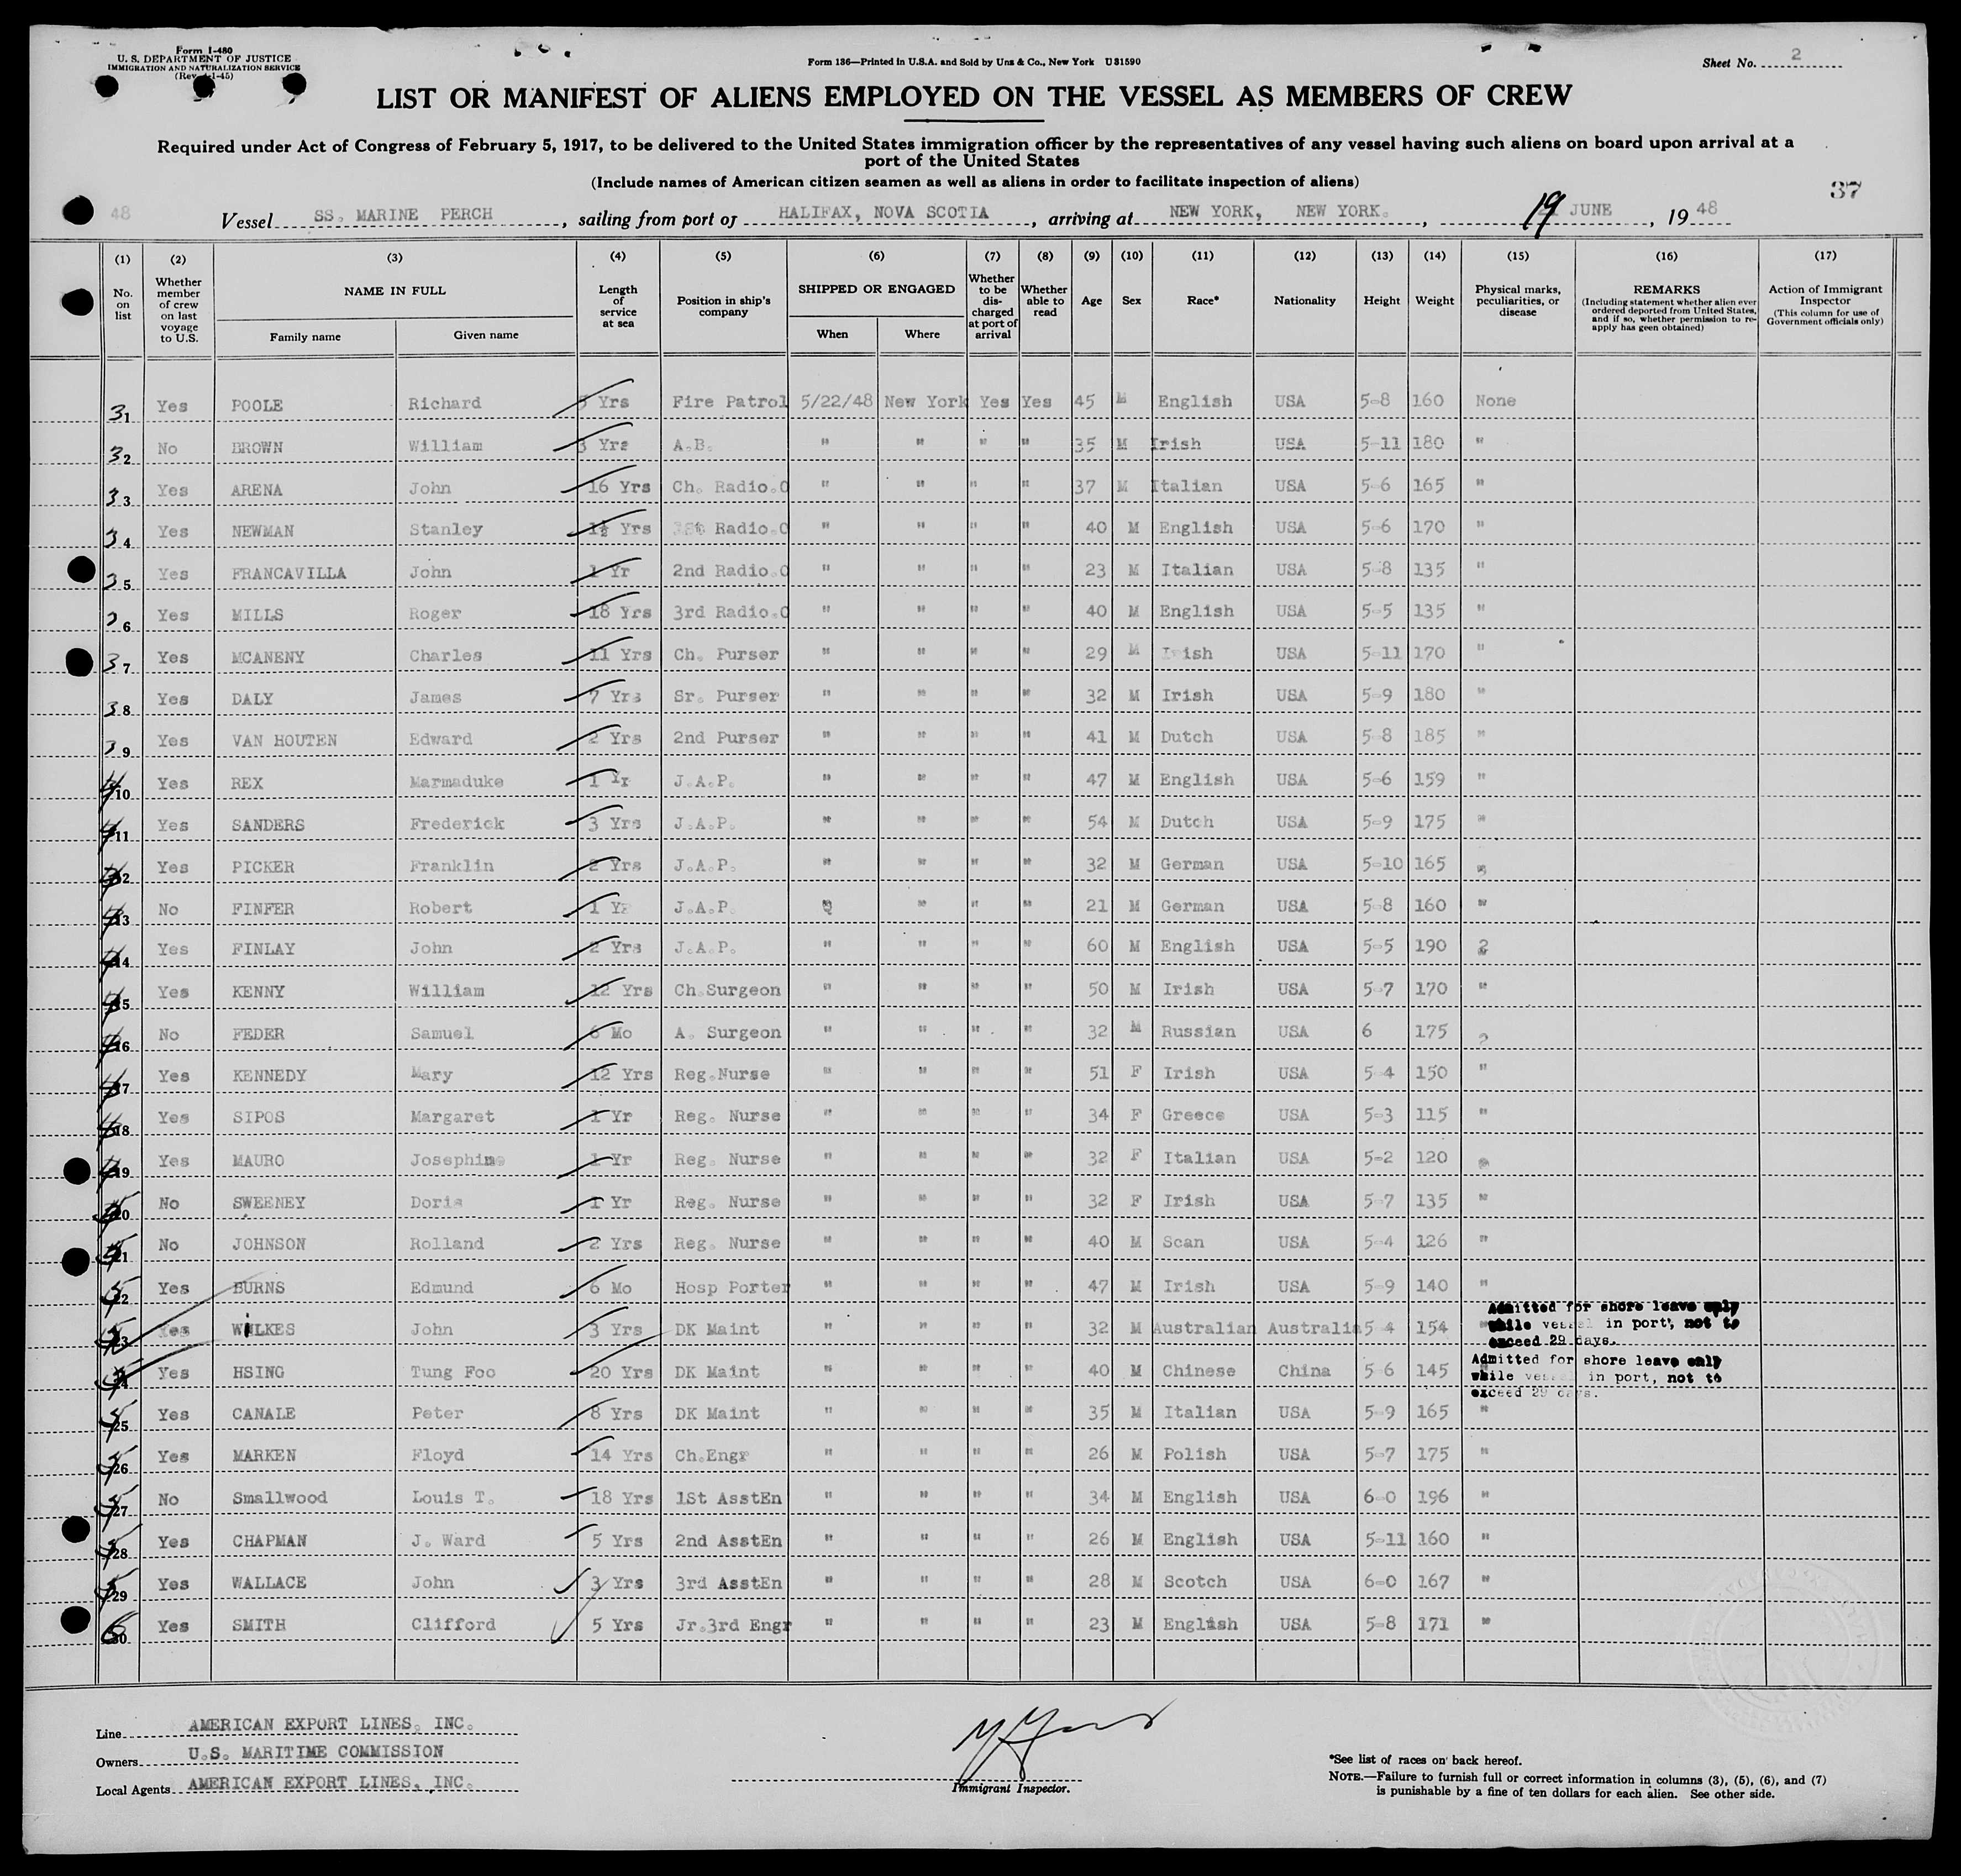 Form I-480
U. S. DEPARTMENT OF JUSTICE
IMMIGRATION AND NATURALIZATION SERVICE
(Rev. 4-1-45)
Form 136—Printed in U.S.A. and Sold by Unz & Co., New York U 31590
Sheet No. 2
LIST OR MANIFEST OF ALIENS EMPLOYED ON THE VESSEL AS MEMBERS OF CREW
Required under Act of Congress of February 5, 1917, to be delivered to the United States immigration officer by the representatives of any vessel having such aliens on board upon arrival at a
port of the United States
(Include names of American citizen seamen as well as aliens in order to facilitate inspection of aliens)
37
48 Vessel SS. MARINE PERCH, sailing from port of HALIFAX, NOVA SCOTIA, arriving at NEW YORK, NEW YORK., 19 JUNE, 19 48
(1) No. on list
(2) Whether member of crew on last voyage to U.S.
(3) NAME IN FULL Family name Given name
(4) Length of service at sea
(5) Position in ship's company
(6) SHIPPED OR ENGAGED When Where
(7) Whether to be discharged at port of arrival
(8) Whether able to read
(9) Age
(10) Sex
(11) Race*
(12) Nationality
(13) Height
(14) Weight
(15) Physical marks, peculiarities, or disease
(16) REMARKS (Including statement whether alien ever ordered deported from United States, and if so, whether permission to re-apply has geen obtained)
(17) Action of Immigrant Inspector (This column for use of Government officials only)
31 Yes POOLE Richard Yrs Fire Patrol 5/22/48 New York Yes Yes 45 M English USA 5-8 160 None
32 No BROWN William 3 Yrs A.B. " " " " 35 M Irish USA 5-11 180 "
33 Yes ARENA John 16 Yrs Ch. Radio.O " " " " 37 M Italian USA 5-6 165 "
34 Yes NEWMAN Stanley 1½ Yrs Radio.O " " " " 40 M English USA 5-6 170 "
35 Yes FRANCAVILLA John 1 Yr 2nd Radio.O " " " " 23 M Italian USA 5-8 135 "
36 Yes MILLS Roger 18 Yrs 3rd Radio.O " " " " 40 M English USA 5-5 135 "
37 Yes MCANENY Charles 11 Yrs Ch. Purser " " " " 29 M Irish USA 5-11 170 "
38 Yes DALY James 7 Yrs Sr. Purser " " " " 32 M Irish USA 5-9 180 "
39 Yes VAN HOUTEN Edward 2 Yrs 2nd Purser " " " " 41 M Dutch USA 5-8 185 "
10 Yes REX Marmaduke 1 Yr J.A.P. " " " " 47 M English USA 5-6 159 "
11 Yes SANDERS Frederick 3 Yrs J.A.P. " " " " 54 M Dutch USA 5-9 175 "
12 Yes PICKER Franklin 2 Yrs J.A.P. " " " " 32 M German USA 5-10 165 "
13 No FINFER Robert 1 Yr J.A.P. " " " " 21 M German USA 5-8 160 "
14 Yes FINLAY John 2 Yrs J.A.P. " " " " 60 M English USA 5-5 190
15 Yes KENNY William 12 Yrs Ch.Surgeon " " " " 50 M Irish USA 5-7 170 "
16 No FEDER Samuel 6 Mo A. Surgeon " " " " 32 M Russian USA 6 175
17 Yes KENNEDY Mary 12 Yrs Reg.Nurse " " " " 51 F Irish USA 5-4 150 "
18 Yes SIPOS Margaret 1 Yr Reg. Nurse " " " " 34 F Greece USA 5-3 115 "
19 Yes MAURO Josephine 1 Yr Reg. Nurse " " " " 32 F Italian USA 5-2 120
20 No SWEENEY Doris 1 Yr Reg. Nurse " " " " 32 F Irish USA 5-7 135 "
21 No JOHNSON Rolland 2 Yrs Reg. Nurse " " " " 40 M Scan USA 5-4 126 "
22 Yes BURNS Edmund 6 Mo Hosp Porter " " " " 47 M Irish USA 5-9 140 "
23 Yes WILKES John 3 Yrs DK Maint " " " " 32 M Australian Australia 5-4 154 " Admitted for shore leave only while vessel in port, not to exceed 29 days.
24 Yes HSING Tung Foo 20 Yrs DK Maint " " " " 40 M Chinese China 5-6 145 Admitted for shore leave only while vessel in port, not to exceed 29 days.
25 Yes CANALE Peter 8 Yrs DK Maint " " " " 35 M Italian USA 5-9 165 "
26 Yes MARKEN Floyd 14 Yrs Ch.Engr " " " " 26 M Polish USA 5-7 175 "
27 No Smallwood Louis T. 18 Yrs 1St AsstEn " " " " 34 M English USA 6-0 196 "
28 Yes CHAPMAN J. Ward 5 Yrs 2nd AsstEn " " " " 26 M English USA 5-11 160 "
29 Yes WALLACE John 3 Yrs 3rd AsstEn " " " " 28 M Scotch USA 6-0 167 "
30 Yes SMITH Clifford 5 Yrs Jr.3rd Engr " " " " 23 M English USA 5-8 171 "
Line AMERICAN EXPORT LINES, INC.
Owners U.S. MARITIME COMMISSION
Local Agents AMERICAN EXPORT LINES, INC.
Immigrant Inspector.
*See list of races on back hereof.
NOTE.—Failure to furnish full or correct information in columns (3), (5), (6), and (7)
is punishable by a fine of ten dollars for each alien. See other side.